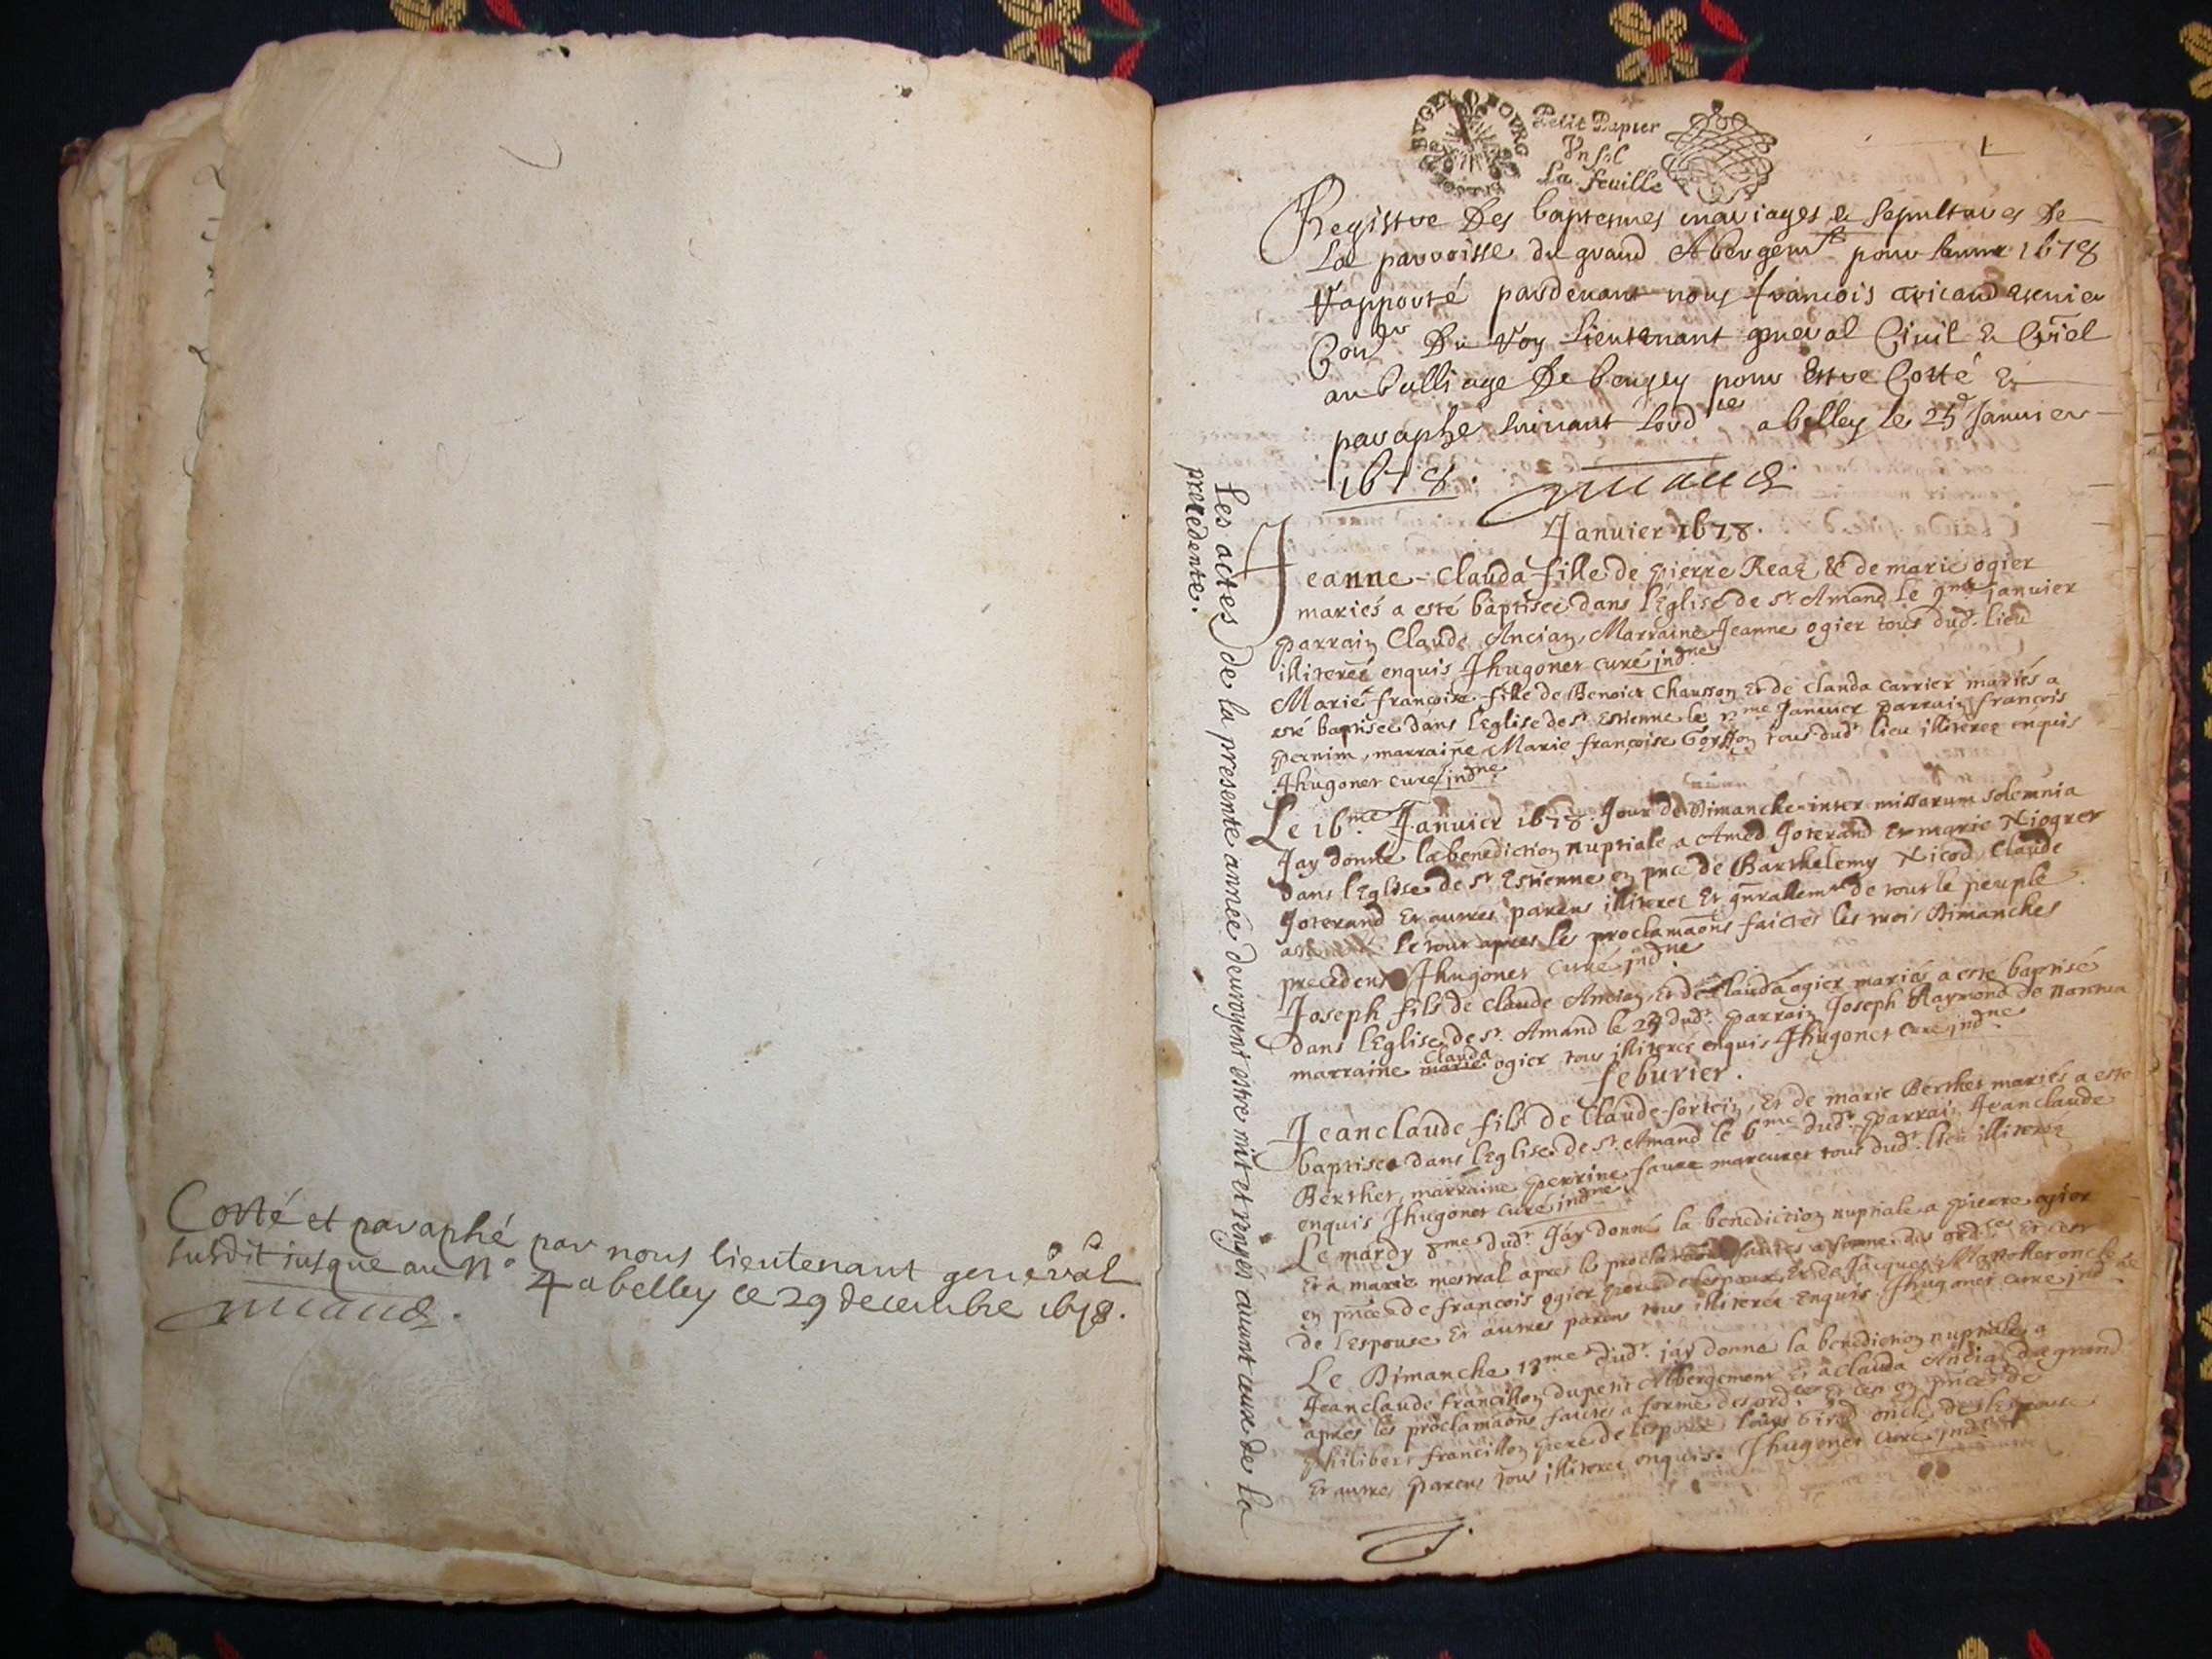 Cotté et paraphé par nous lieutenant general
susdit jusque au n° 4 a belley ce 29 decembre 1678.
BUGEY BOURG
Petit Papier
Vn sol
La feuille
1
Registre Des baptesmes mariages & sepultures De
La parroisse du grand Abergemt pour lannee 1678
rapporté pardevant nous francois
Conr Du Roy Lieutenant general Civil & Criel
au balliage De beugey pour Estre Cotté &
paraphé suivant lordce a belley le 25 Janvier
1678.
Les actes de la presente année deuroyent estre mit et rengés auant ceux de la
precedente.
Janvier 1678.
Jeanne-Clauda fille de pierre Reaz & de marie ogier
mariés a esté baptisee dans l'Eglise de st. Amand le 9me janvier
parrain Claude Ancian, Marraine Jeanne ogier tous dudt. lieu
illiterés enquis Jhugonet curé jndne
Marie francoise fille de Benoict Chausson et de clauda carrier mariés a
esté baptisee dans l'Eglise de st Estienne le Janvier parrain francois
pernim, marraine Marie francoise tous dudt lieu illiterés enquis
Jhugonet curé jndne
Le 16me Janvier 1678 Jour de Dimanche inter missarum solemnia
Jay donné la benediction nuptiale a Amed Joterand Et marie Niogret
dans l'Eglise de st Estienne en pnce de Barthelemy Nicod, Claude
Joterand Et autres parens illiterés Et gnrallemt de tout le peuple
le tout apres les proclamaons faictes les trois Dimanches
precedents Jhugonet curé jndne
Joseph fils de Claude Ancian, et de Clauda ogier mariés a esté baptisé
dans l'Eglise de st. Amand le 23 dudt. parrain Joseph Raymond de nantua
marraine marie Clauda ogier tous illiterés enquis Jhugonet curé jndne
feburier.
Jeanclaude fils de Claude fortin, Et de marie Berthet mariés a esté
baptisé dans l'Eglise de st. Amand le 6me dudt. parrain Jeanclaude
Berthet, marraine perrine faure marcuret tous dudt. lieu illiterés
enquis Jhugonet curé jndne
Le mardy 8me dudt. Jay donné la benediction nuptiale a pierre ogier
Et a marie mestral apres les proclamaons faictes a forme des ordces Et ce
en pnce de francois ogier pere de lespoux, Et de Jacques oncle
de l'Espouse Et autres parens tous illiterés enquis Jhugonet curé jndne
Le Dimanche 13me dudt. jay donné la benediction nuptiale a
Jeanclaude francillon du petit Abergement Et a clauda Ancian du grand
apres les proclamaons faictes a forme des ordces Et ce en pnce de
philibert francillon pere de lespoux louys oncle de l'Espouse
Et autres parens tous illiterés enquis. Jhugonet curé jndne